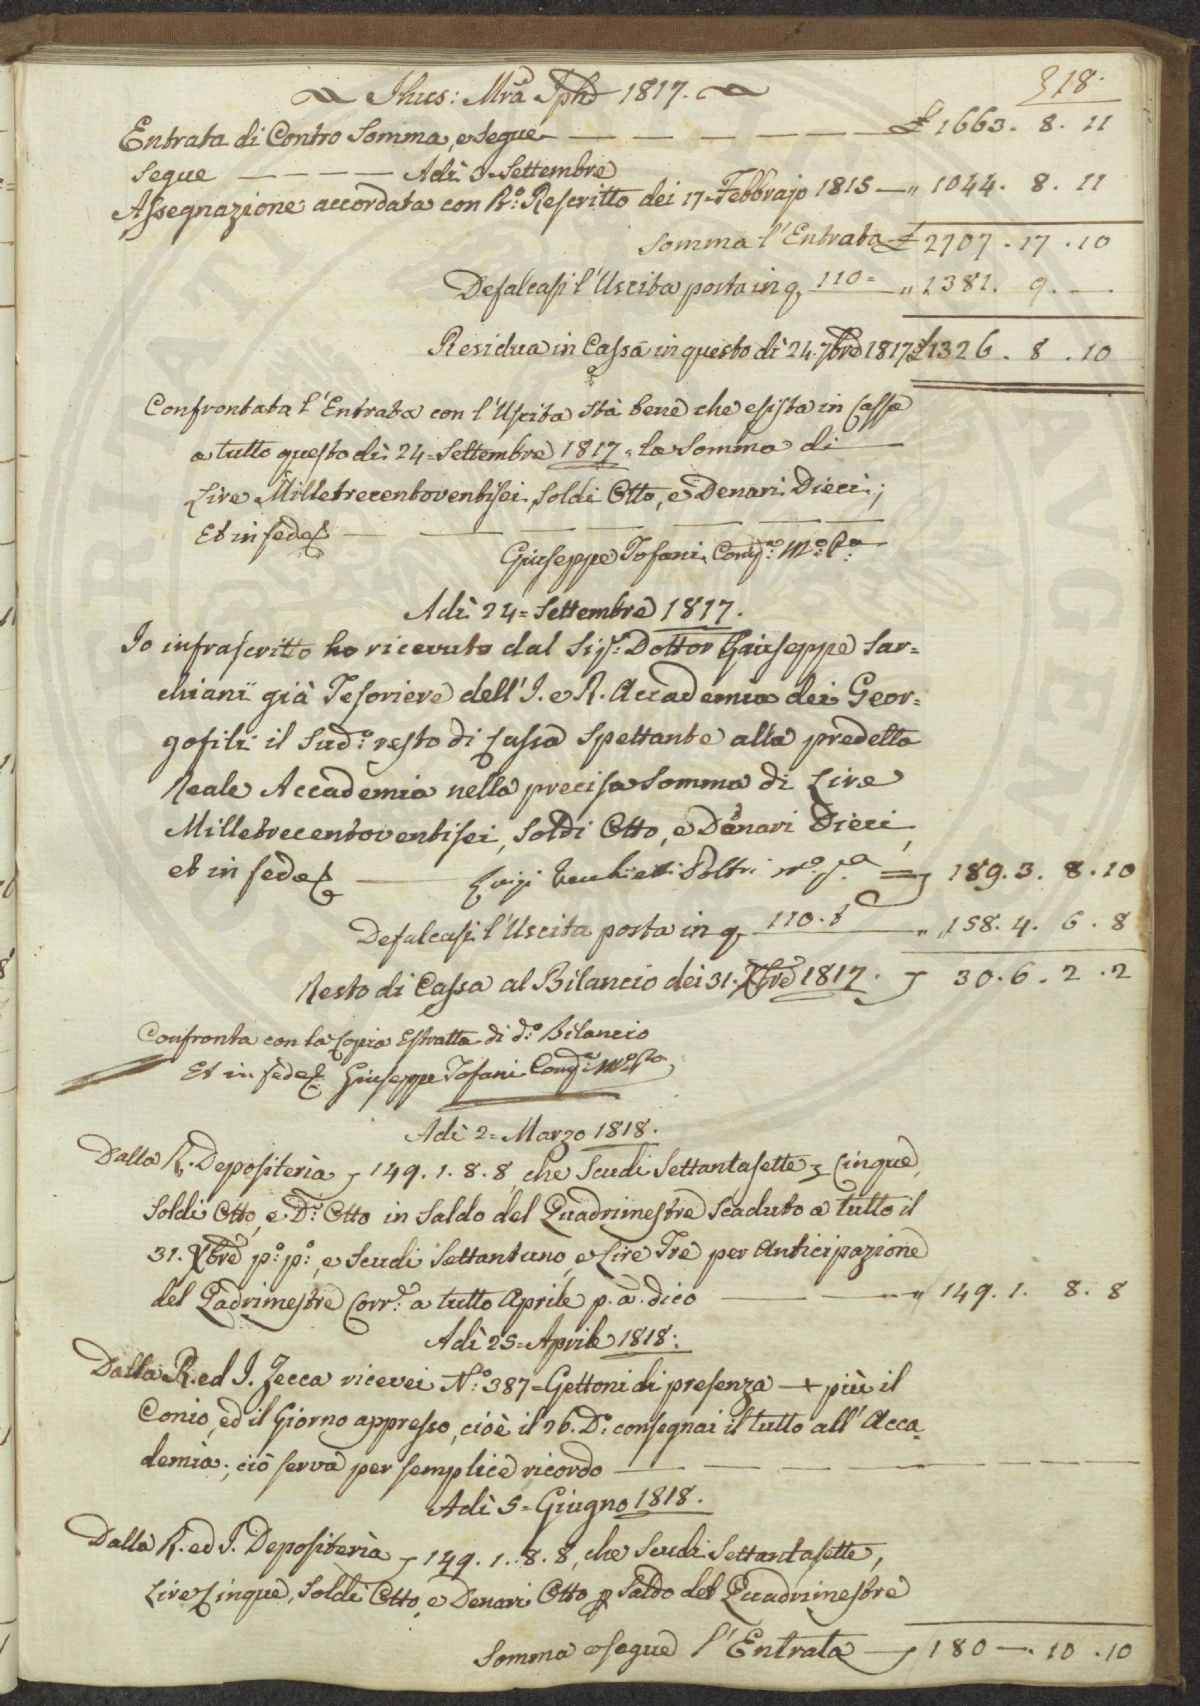 218.
Jhus: Mrâ Jph 1817.
Entrata di Contro Somma, e Segue — £ 1663. 8. 11
Segue — Adì 3=Settembre
Assegnazione accordata con Rº: Rescritto dei 17=Febbrajo 1815 — „ 1044. 8. 11
Somma l'Entrata £ 2707. 17. 10
Defalcasi l'Uscita posta in q. 110= — „ 1381. 9. —
Residua in Cassa in questo dì 24. 7bre 1817 £ 1326. 8. 10
Confrontata l'Entrata con l'Uscita stà bene che esista in Cassa
a tutto questo dì 24=Settembre 1817=la Somma di
Lire Milletrecentoventisei, Soldi Otto, e Denari Dieci;
Et in fede —
Giuseppe Tofani Compª: Mº: Pª:
Adì 24=Settembre 1817.
Io infrascritto ho ricevuto dal Sigr: Dottor Giuseppe Sar=
chiani già Tesoriere dell'I. e R. Accademia dei Geor=
gofili il sudº: resto di Cassa Spettante alla predetta
Reale Accademia nella precisa Somma di Lire
Milletrecentoventisei, Soldi Otto, e Denari Dieci,
et in fede — Luigi Poltri mº. pª = 189. 3. 8. 10
Defalcasi l'Uscita posta in q. 110. t — „ 158. 4. 6. 8
Resto di Cassa al Bilancio dei 31. Xbre 1817. 30. 6. 2. 2
Confronta con la Copia Estratta di dº: Bilancio
Et in fede Giuseppe Tofani Compª: Mº Pª
Adì 2=Marzo 1818.
Dalla R. Depositeria 149. 1. 8. 8, che Scudi Settantasette, Cinque,
Soldi Otto, e Dº: Otto in Saldo del Quadrimestre Scaduto a tutto il
31. Xbre pº: pº:, e Scudi Settantuno, e Lire Tre per Anticipazione
del Qadrimestre Corrº: a tutto Aprile p. a. dico — „ 149. 1. 8. 8
Adì 25=Aprile 1818.
Dalla R. ed I. Zecca ricevei Nº: 387=Gettoni di presenza + più il
Conio, ed il Giorno appresso, cioè il 26. Dº: consegnai il tutto all'Acca=
demia; ciò serva per semplice ricordo —
Adì 5=Giugno 1818.
Dalla R. ed I. Depositeria 149. 1. 8. 8, che Scudi Settantasette,
Lire Cinque, Soldi Otto, e Denari Otto p Saldo del Quadrimestre
Somma e segue l'Entrata — 180 —. 10. 10